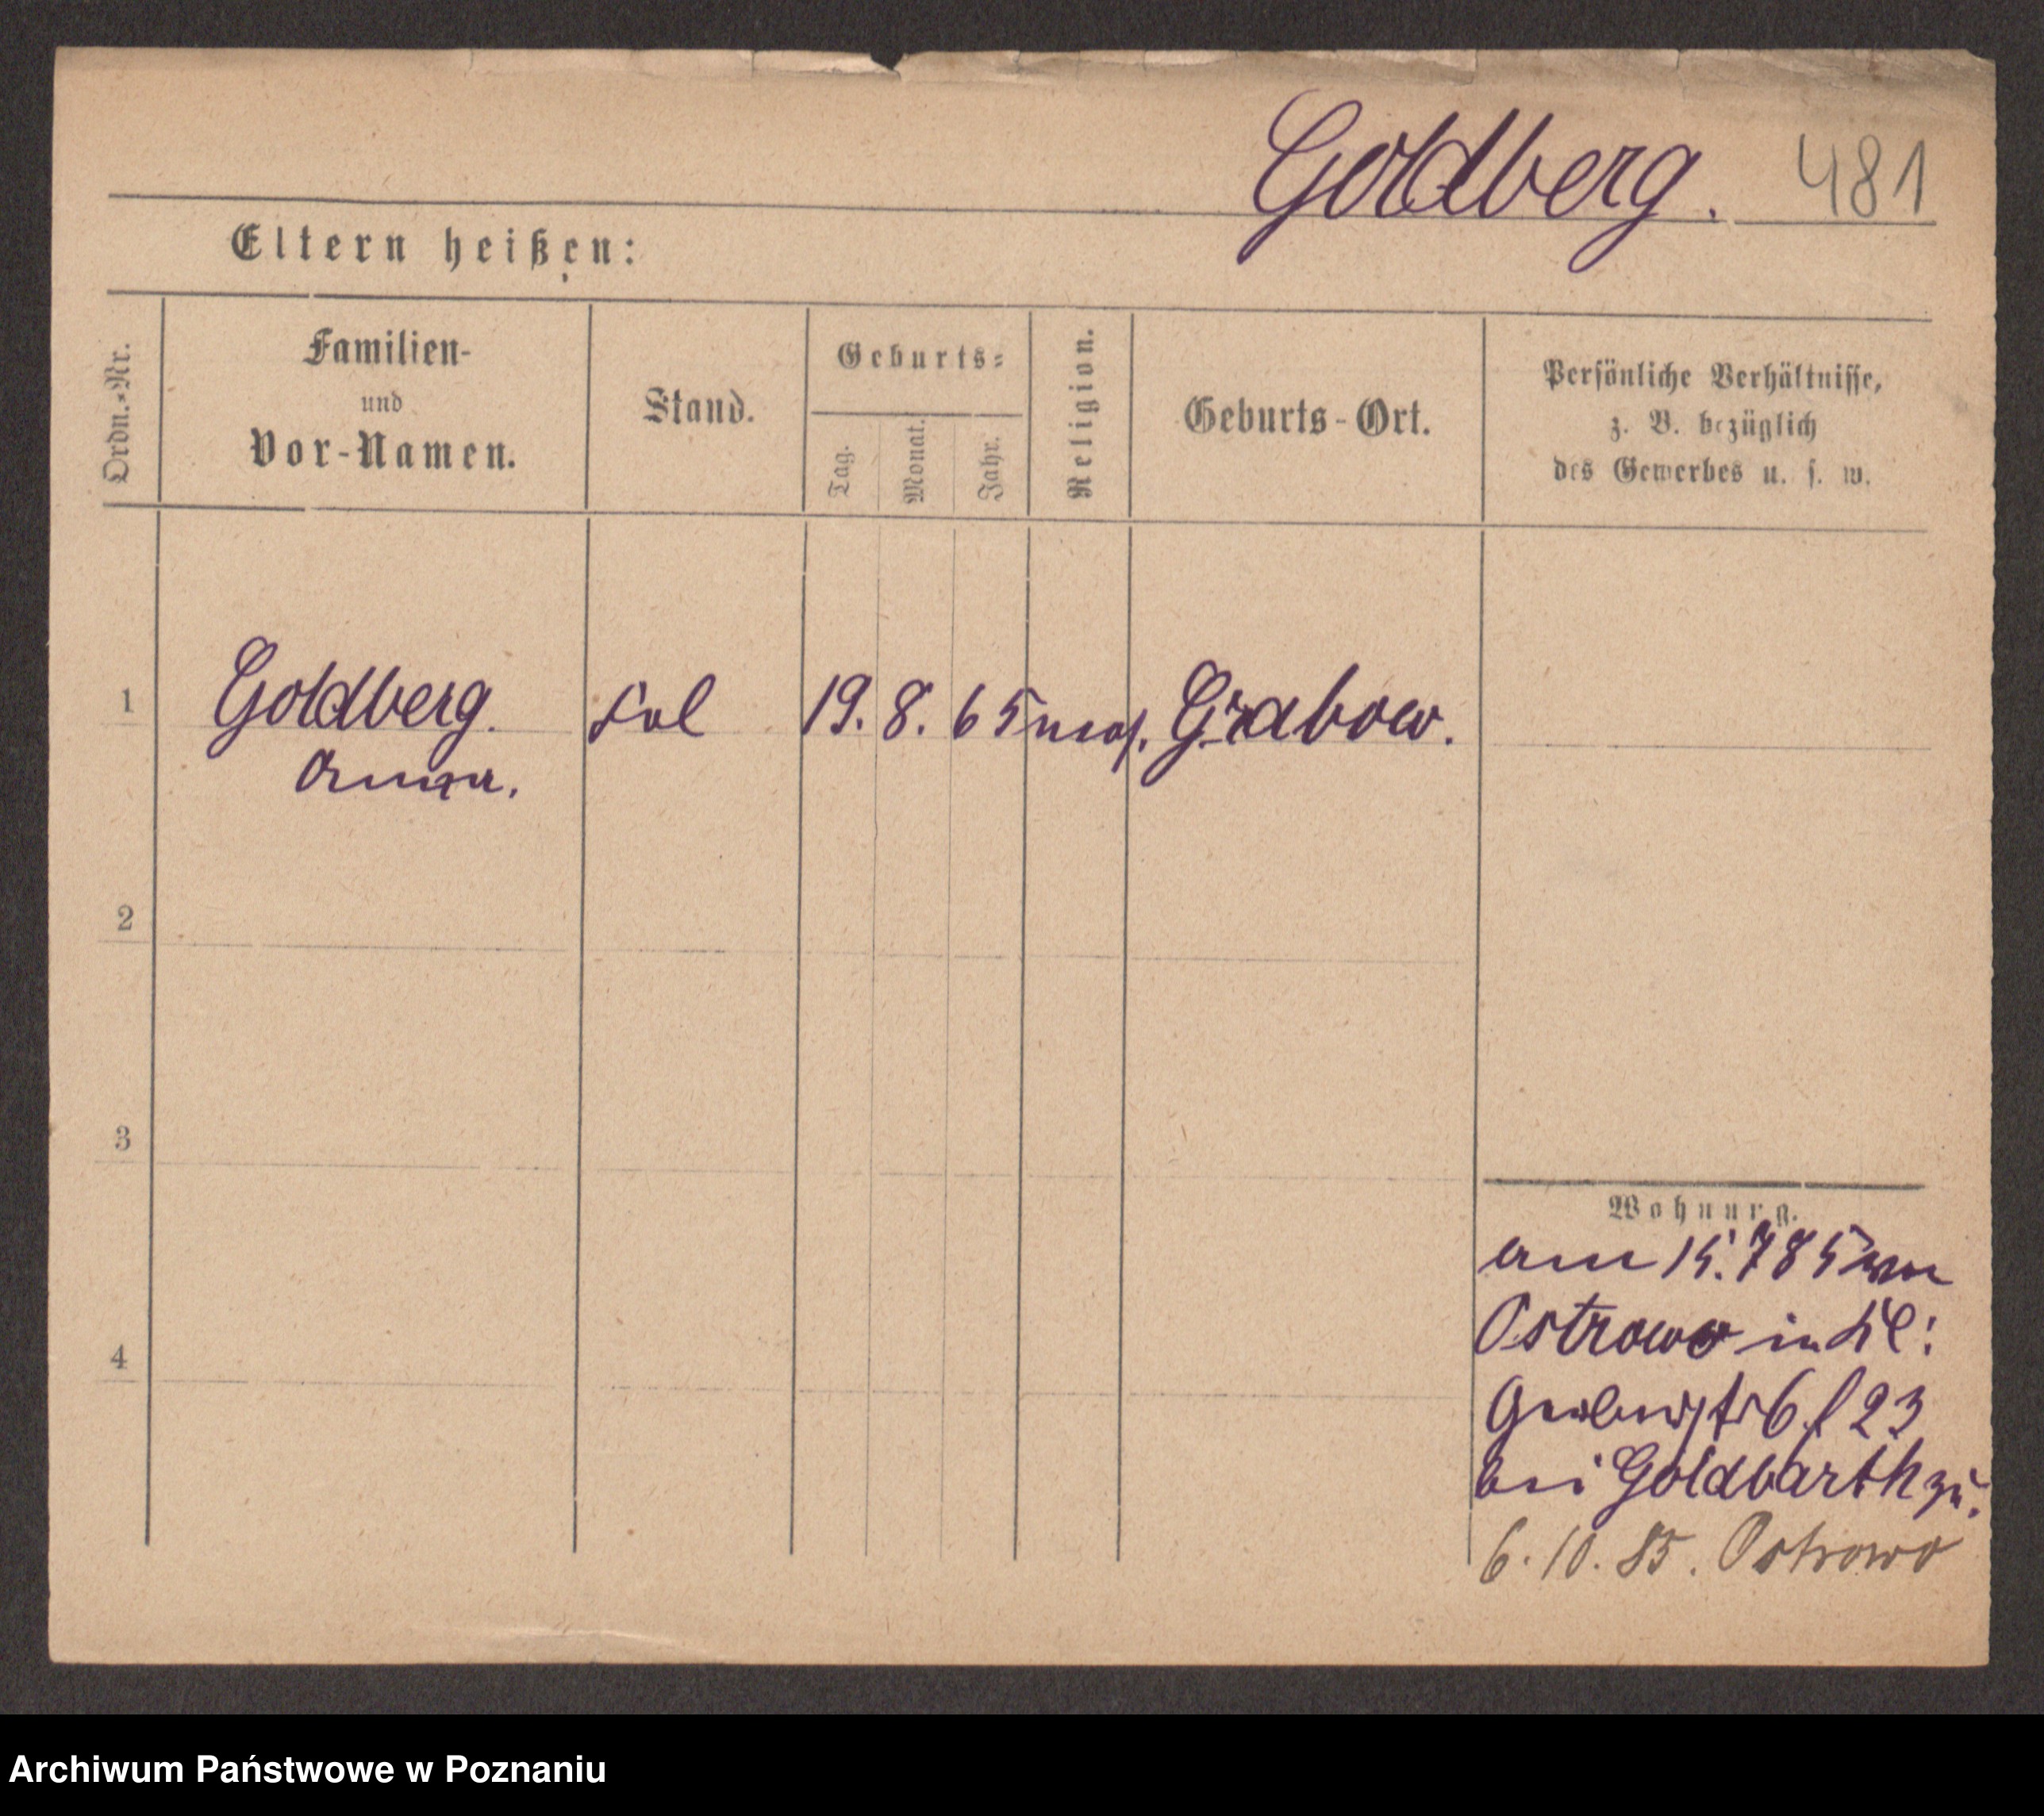 Goldberg. 481
Eltern heißen:
Ordn.-Nr.
Familien-
und
Vor-Namen.
Stand.
Geburts-
Tag.
Monat.
Jahr.
Religion.
Geburts-Ort.
Persönliche Verhältnisse,
z. B. bezüglich
des Gewerbes u. s. w.
1 Goldberg. 19. 8. 65 mos. Grabow.
Anna.
2
3
4
Wohnung.
am 15. 7 85 von
Ostrowo in
6 / 23
bei Goldbarth zu.
6. 10. 85. Ostrowo
Archiwum Państwowe w Poznaniu